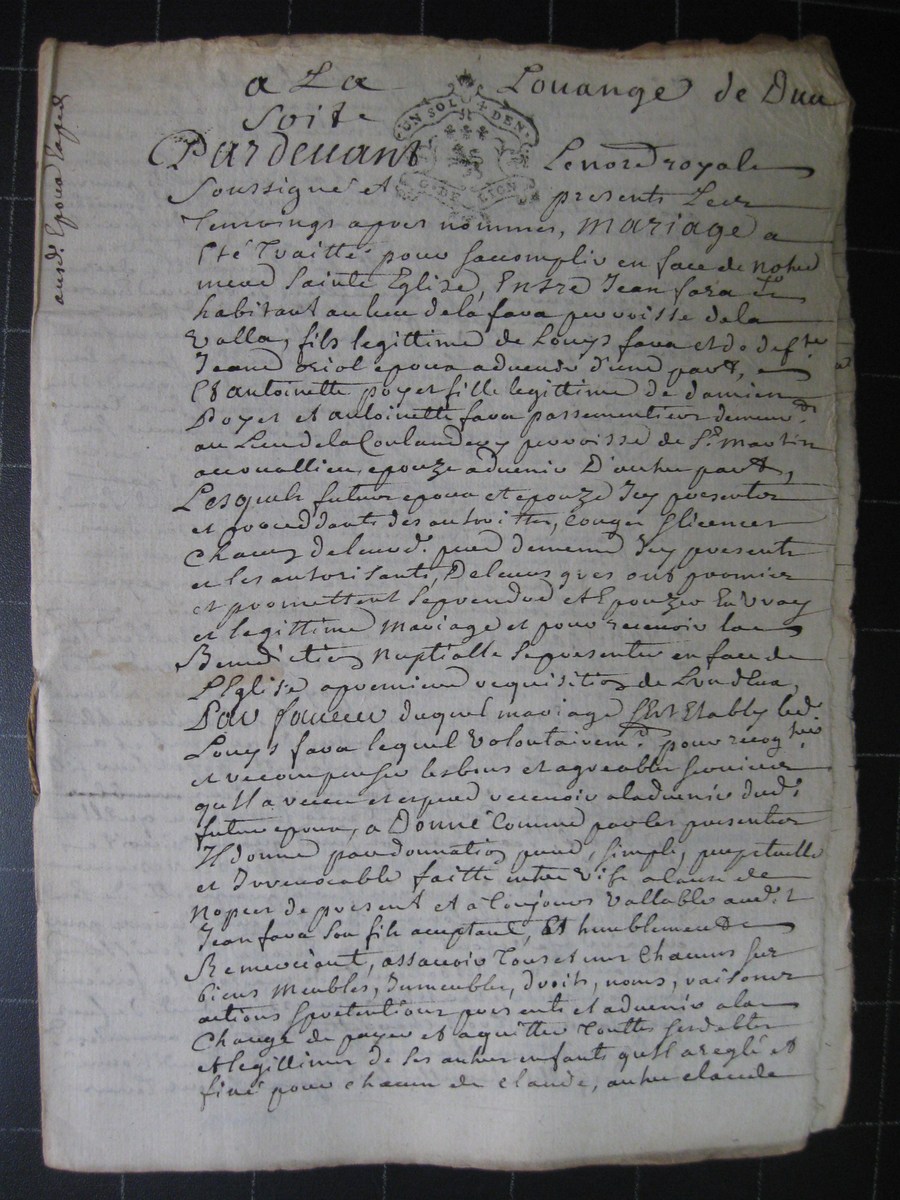 a La Louange de Dieu
Soit
UN SOL 4 DEN
G. DE LYON
Pardevant Le no.re royal
Soussigné et presents Les
Temoings apres nommes, Mariage a
Eté Traitté pour saccomplir en face de notre
mere Sainte Eglise, Entre Jean fara
habitant au lieu de la fava parroisse de la
Valla, fils legittime de Louys fava et de deff.te
Jeane oriol epoux advenir d'une part,
Et antoinette poyet fille legittime de damien
Poyet et antoinette fava passementier demeur.t
au Lieu de la Coulandery parroisse de S.t Martin
acouallieu, epouze advenir D'autre part,
Lesquels futurs epoux et epouze Icy presentes
et proceddants des autorittes, conges & licences
Chacun de leurd. pere de meme Icy presents
et les autorisants, De leurs gres ont promis
et promettent se prendre et Epouzer En vray
et legittime Mariage et pour recevoir la
Benediction Nuptialle se presenter en face de
L'Eglise a premiere requisition de L'un deux,
Par faveur duquel mariage s'est Etably led.
Louys fava lequel Volontairem.t pour
et recompenser les bons et agreables services
qu'Il a receu et espere recevoir a l'advenir dud.t
futur epoux, a Donné Comme par les presentes
Il donne par donnation pure, simple, perpetuelle
et Irrevocable faitte entre vifs a cause de
Noces de present et a toujours Vallable aud.t
Jean fava Son fils aceptant, Et humblement
Remerciant, assavoir Tous et uns Chacuns ses
biens Meubles, Immeubles, droits, noms, raisons
actions & pretentions presents et advenir a la
Charge de payer et aquitter Touttes ses debtes
et legittimes de ses autres enfants qu'Il a reglé et
fixé pour chacun de claude, autre claude
aud. Epoux